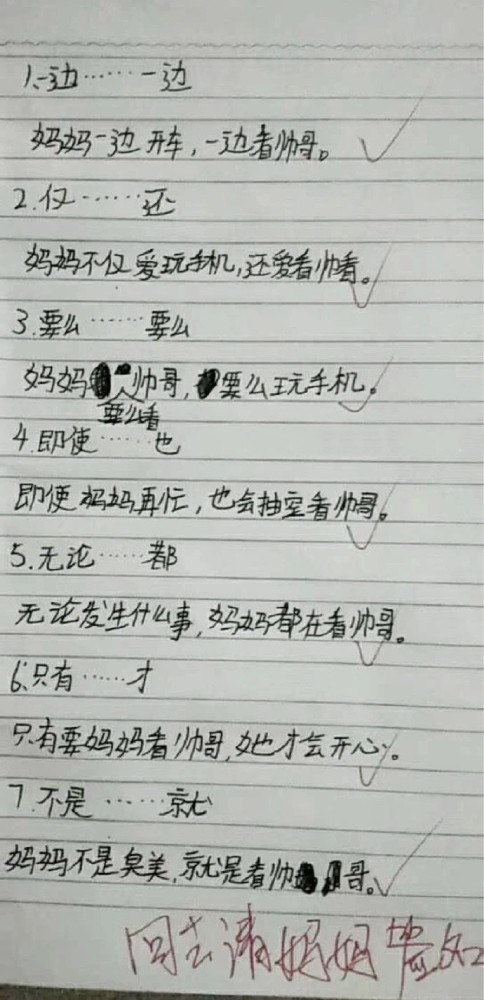 1.一边……一边
妈妈一边开车，一边看帅哥。
2.仅……还
妈妈不仅爱玩手机，还爱看帅看。
3.要么……要么
妈妈要么看帅哥，要么玩手机。
4.即使……也
即使妈妈再忙，也会抽空看帅哥。
5.无论……都
无论发生什么事，妈妈都在看帅哥。
6.只有……才
只有要妈妈看帅哥，她才会开心。
7.不是……就
妈妈不是臭美，就是看帅哥。
回去请妈妈签知